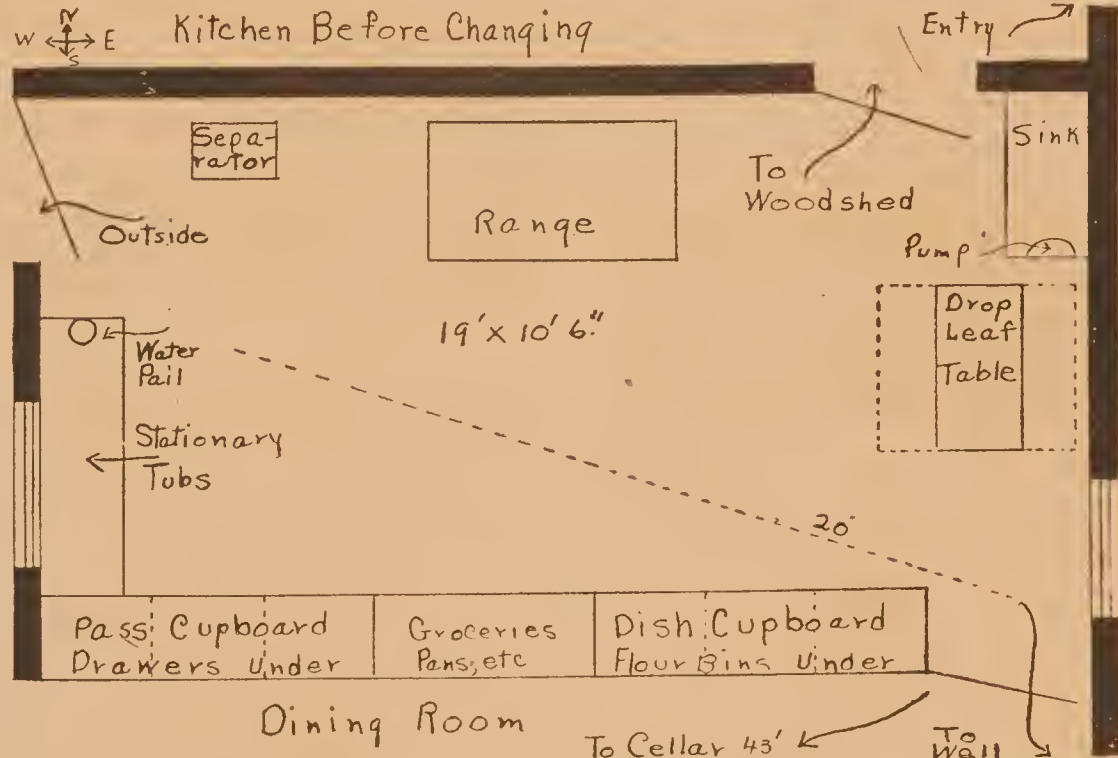 N
W E
S
Kitchen Before Changing
Entry
Sepa-
rator
Range
To
Woodshed
Sink
Outside
Pump
19' x 10' 6"
Drop
Leaf
Table
Water
Pail
Stationary
Tubs
20'
Pass Cupboard
Drawers Under
Groceries
Pans, etc
Dish Cupboard
Flour Bins Under
Dining Room
To Cellar 43'
To
Well